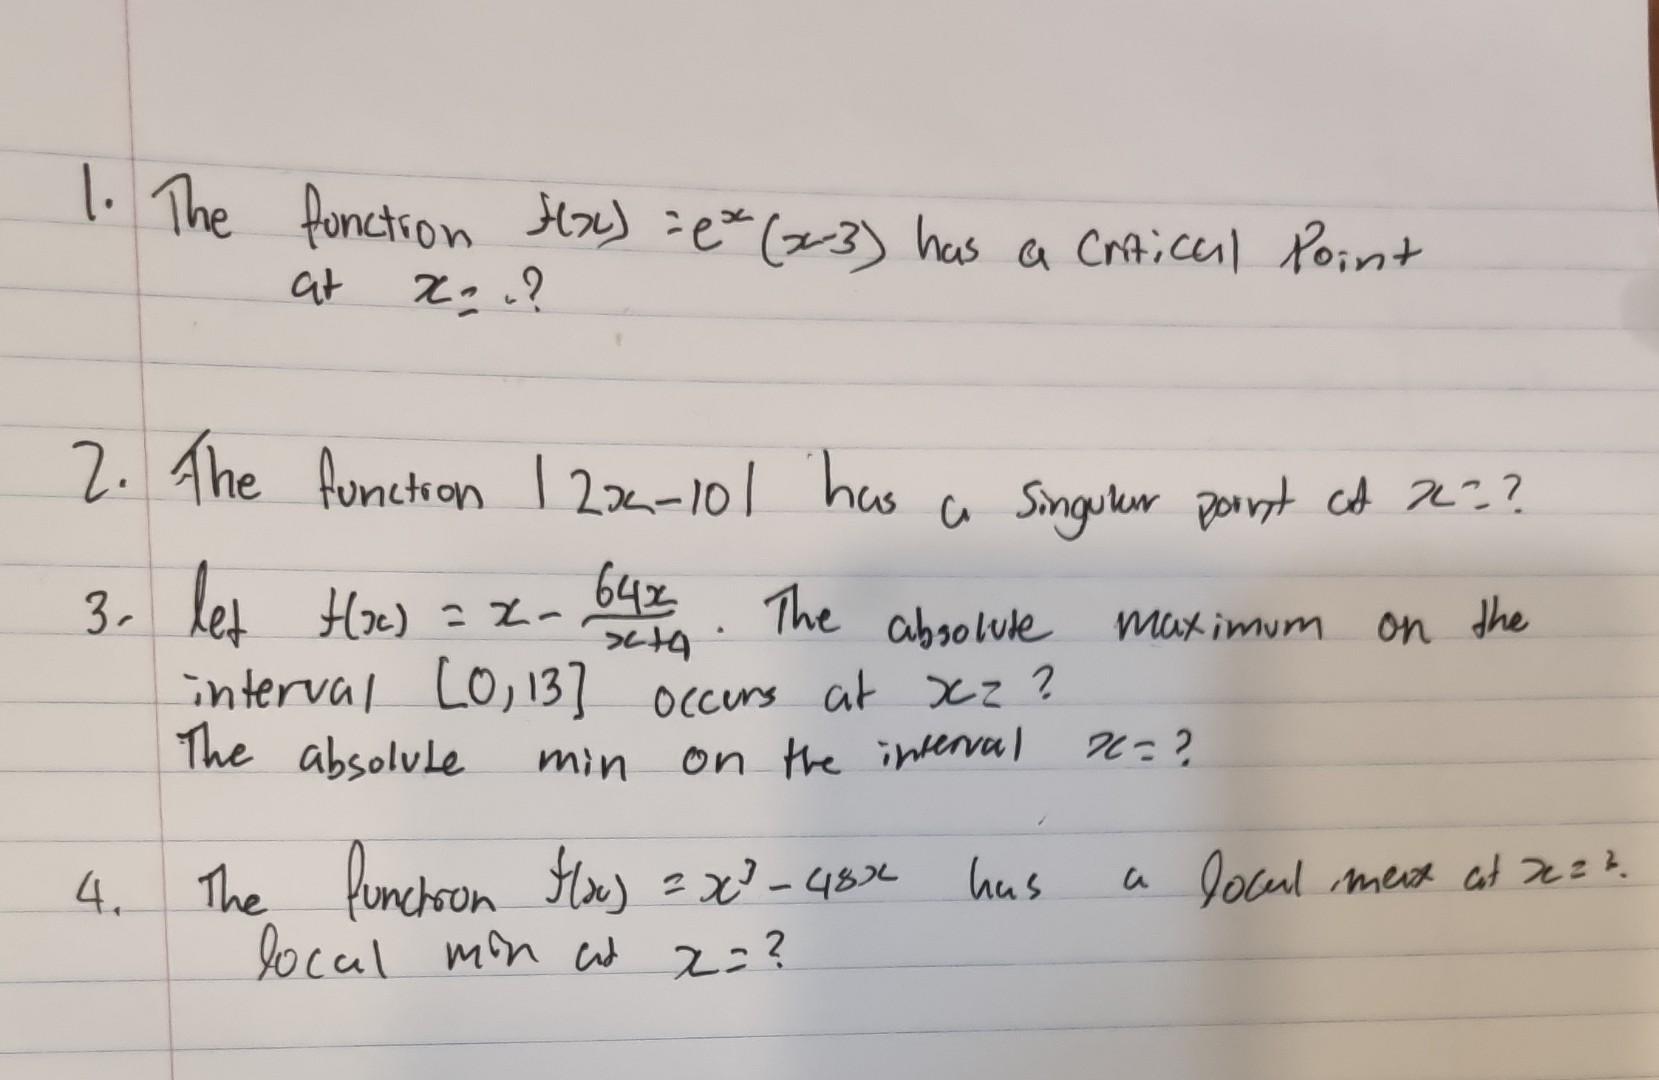 1. The function f(x) = eˣ (x-3) has a critical Point
at x = .?
2. The function |2x-10| has a singular point at x = ?
3. let f(x) = x - 64x/(x+4). The absolute maximum on the
interval [0,13] occurs at x = ?
The absolute min on the interval x = ?
4. The function f(x) = x³ - 48x has a local max at x = ?.
local min at x = ?